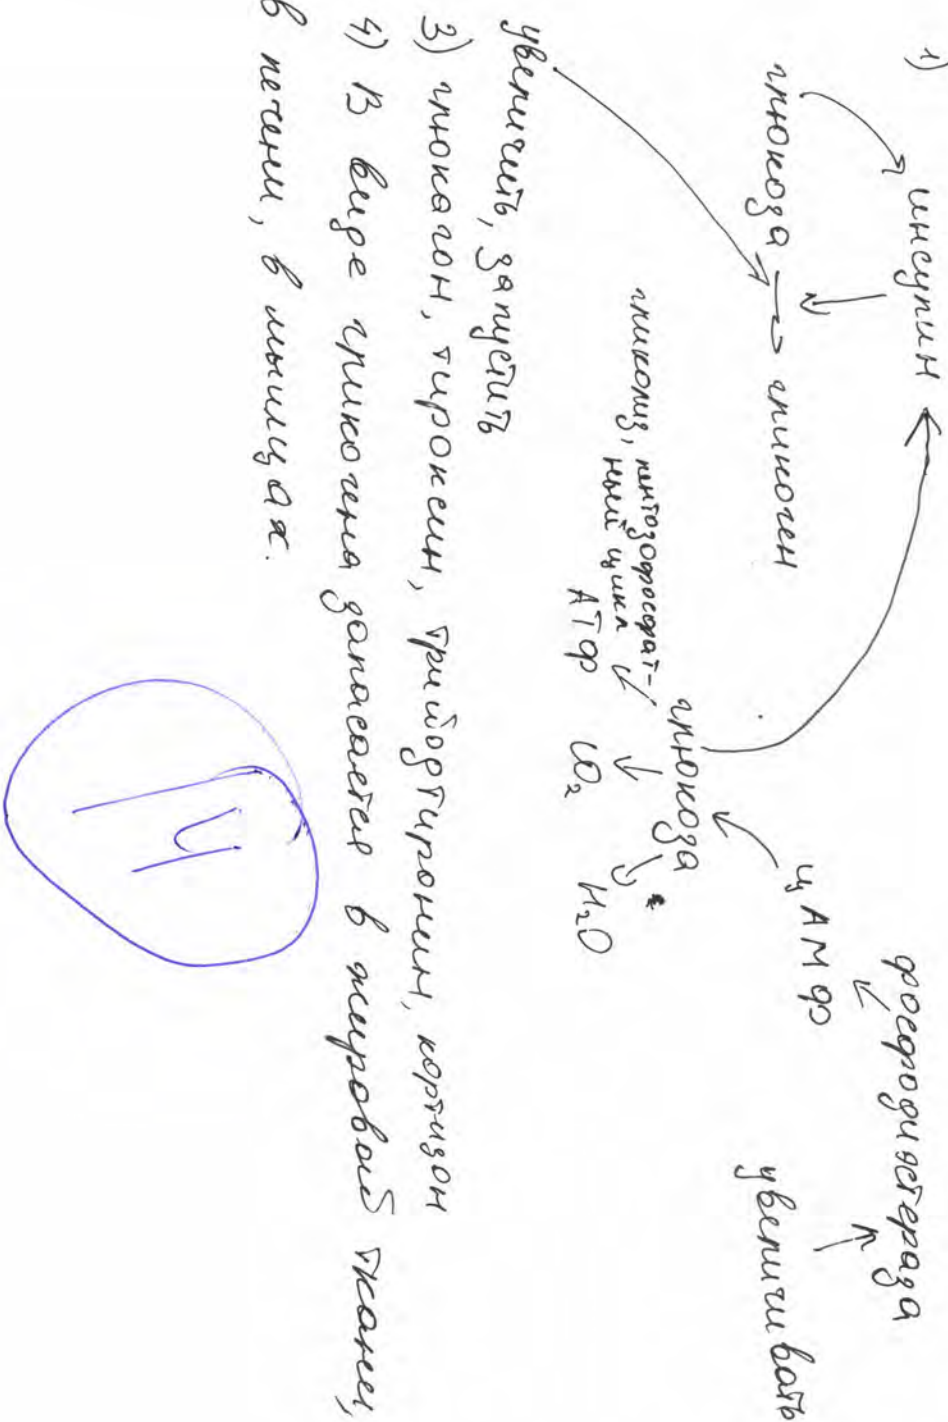 1)
инсулин
фосфодиэстераза
увеличивать
глюкоза → гликоген
цАМФ
глюкоза
гликолиз, пентозофосфат-
ный цикл
АТФ CO₂ H₂O
увеличить, запустить
3) глюкагон, тироксин, трийодтиронин, кортизон
4) В виде гликогена запасается в жировой ткани,
в печени, в мышцах.